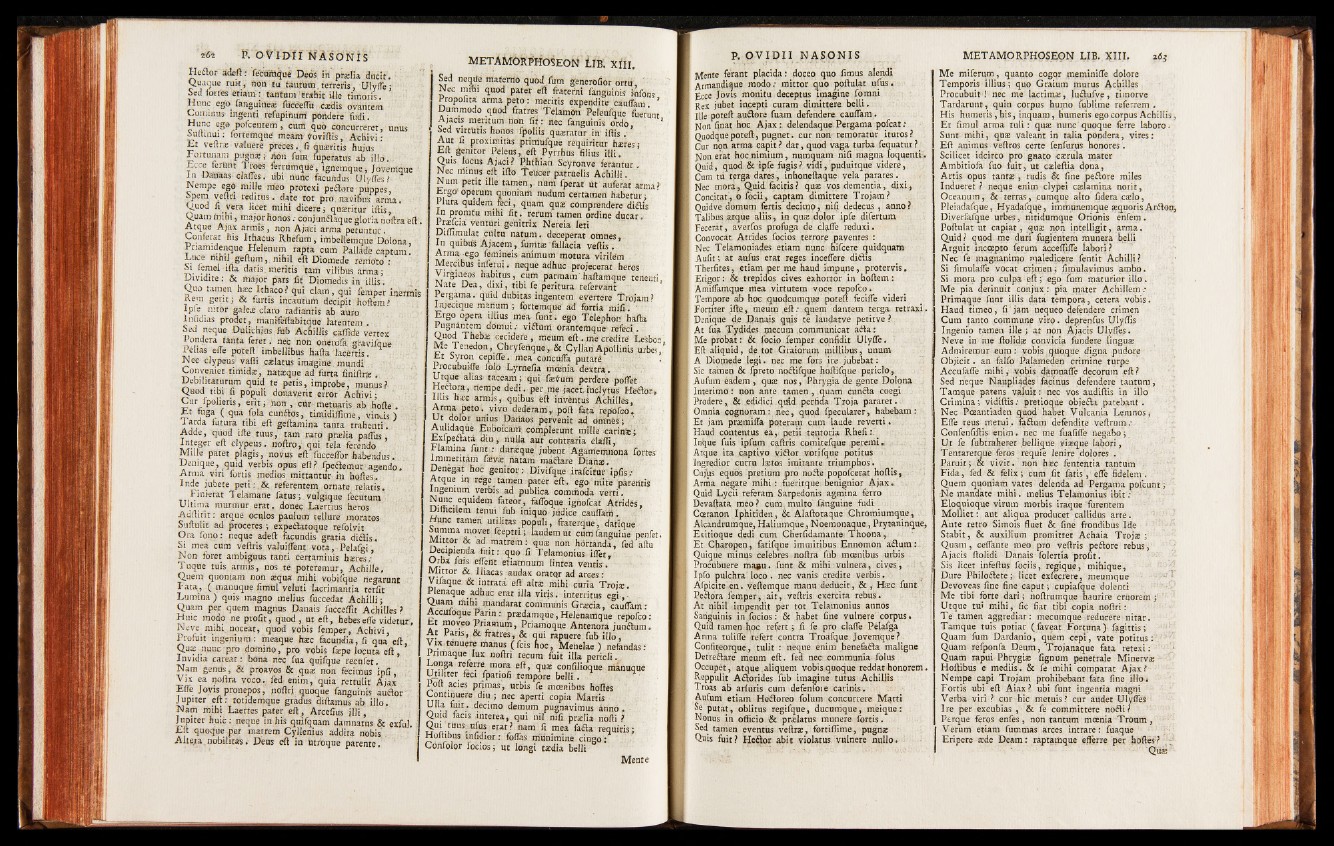 262 P. OVIDII NASONIS
Hector adest: secumque Deos in prælia ducit.
Quaque ruit, non tu tantum terreris, Ulysse;
Sed fortes etiam: tantum trahit ille timoris.
Hunc ego sanguineæ successu cædis ovantem
Cominus ingenti resupinum pondere fudi.
Hunc ego poscentem, cum quo concurreret, unus
Sustinui: sortemque meam vovistis, Achivi:
Et vestræ valuere preces, si quæritis hujus
Fortunam pugnæ; non sum superatus ab illo.
Ecce ferunt Troes ferrumque, ignemque, Jovemque
In Danaas classes. ubi nunc facundus Ulysses?
Nempe ego mille meo protexi pectore puppes,
Spem vestri reditus. date tot pro navibus arma.
Quod si vera licet mihi dicere; quæritur istis,
Quam mihi, major honos. conjunctaque gloria nostra est.
Atque Ajax armis, non Ajaci arma petuntur.
Conferat his Ithacus Rhesum, imbellemque Dolona,
Priamidenque Helenum rapta cum Pallade captum.
Luce nihil gestum, nihil est Diomede remoto:
Si semel ista datis meritis tam vilibus arma;
Dividite: & major pars sit Diomedis in illis.
Quo tamen hæc Ithaco? qui clam, qui semper inermis
Rem gerit; & furtis incautum decipit hostem?
Ipse nitor galeæ claro radiantis ab auro
Insidias prodet, manifestabitque latentem.
Sed neque Dulichius sub Achillis casside vertex
Pondera tanta feret. nec non onerosa gravisque
Pelias esse potest imbellibus hasta lacertis.
Nec clypeus vasti cælatus imagine mundi
Conveniet timidæ, natæque ad furta sinistræ.
Debilitaturum quid te petis, improbe, munus?
Quod tibi si populi donaverit error Achivi;
Cur spolieris, erit; non, cur metuaris ab hoste.
Et fuga (qua sola cunctos, timidissime, vincis)
Tarda futura tibi est gestamina tanta trahenti.
Adde, quod iste tuus, tam raro prælia passus,
Integer est clypeus. nostro, qui tela ferendo
Mille patet plagis, novus est successor habendus.
Denique, quid verbis opus est? spectemur agendo.
Arma viri fortis medios mittantur in hostes.
Inde jubete peti: & referentem ornate relatis.
Finierat Telamone satus; vulgique secutum
Ultima murmur erat. donec Laertius heros
Adstitit: atque oculos paulum tellure moratos
Sustulit ad proceres; expectatoque resolvit
Ora sono: neque adest facundis gratia dictis.
Si mea cum vestris valuissent vota, Pelasgi,
Non foret ambiguus tanti certaminis hæres:
Tuque tuis armis, nos te poteremur, Achille.
Quem quoniam non æqua mihi vobisque negarunt
Fata, (manuque simul veluti lacrimantia tersit
Lumina) quis magno melius succedat Achilli;
Quam per quem magnus Danais successit Achilles?
Huic modo ne prosit, quod, ut est, hebes esse videtur.
Neve mihi noceat, quod vobis semper, Achivi,
Profuit ingenium: meaque hæc facundia, si qua est,
Quæ nunc pro domino, pro vobis sæpe locuta est,
Invidia careat: bona nec sua quisque recuset.
Nam genus, & proavos & quæ non fecimus ipsi,
Vix ea nostra voco. sed enim, quia rettulit Ajax
Esse Jovis pronepos, nostri quoque sanguinis auctor
Jupiter est: totidemque gradus distamus ab illo.
Nam mihi Laertes pater est, Arcesius illi,
Jupiter huic: neque in his quisquam damnatus & exsul.
Est quoque per matrem Cyllenius addita nobis
Altera nobilitas. Deus est in utroque parente.
METAMORPHOSEON LIB. XIII.
Sed neque materno quod sum generosior ortu,
Nec mihi quod pater est fraterni sanguinis insons,
Proposita arma peto: meritis expendite caussam.
Dummodo quod fratres Telamon Peleusque fuerunt,
Ajacis meritum non sit: nec sanguinis ordo,
Sed virtutis honos spoliis quæratur in istis.
Aut si proximitas primusque requiritur hæres;
Est genitor Peleus, est Pyrrhus filius illi.
Quis locus Ajaci? Phthian Scyronve ferantur.
Nec minus est isto Teucer patruelis Achilli.
Num petit ille tamen, num sperat ut auferat arma?
Ergo operum quoniam nudum certamen habetur;
Plura quidem feci, quam quæ comprendere dictis
In promtu mihi sit. rerum tamen ordine ducar.
Præscia venturi genitrix Nereia leti
Dissimulat cultu natum. deceperat omnes,
In quibus Ajacem, sumtæ fallacia vestis.
Arma ego femineis animum motura virilem
Mercibus inserui. neque adhuc projecerat heros
Virgineos habitus, cum parmam hastamque tenenti,
Nate Dea, dixi, tibi se peritura reservant
Pergama. quid dubitas ingentem evertere Trojam?
Injecique manum; fortemque ad fortia misi.
Ergo opera illius mea sunt. ego Telephon hasta
Pugnantem domui: victum orantemque refeci.
Quod Thebæ cecidere, meum est. me credite Lesbon,
Me Tenedon, Chrysenque, & Cyllan Apollinis urbes,
Et Syron cepisse. mea concussa putate
Procubuisse solo Lyrnesia mœnia dextra.
Utque alias taceam; qui sævum perdere posset
Hectora, nempe dedi. per me jacet inclytus Hector.
Illis hæc armis, quibus est inventus Achilles,
Arma peto. vivo dederam, post fata reposco.
Ut dolor unius Danaos pervenit ad omnes;
Aulidaque Euboicam complerunt mille carinæ;
Exspectata diu, nulla aut contraria classi,
Flamina sunt: duræque jubent Agamemnona sortes
Immeritam sævæ natam mactare Dianæ.
Denegat hoc genitor: Divisque irascitur ipsis:
Atque in rege tamen pater est. ego mite parentis
Ingenium verbis ad publica commoda verti.
Nunc equidem fateor, fassoque ignoscat Atrides,
Difficilem tenui sub iniquo judice caussam.
Hunc tamen utilitas populi, fraterque, datique
Summa movet sceptri; laudem ut cum sanguine penset.
Mittor & ad matrem: quæ non hortanda, sed astu
Decipienda fuit: quo si Telamonius isset,
Orba suis essent etiamnum lintea ventis.
Mittor & Iliacas audax orator ad arces:
Visaque & intrata est altæ mihi curia Trojæ.
Plenaque adhuc erat illa viris. interritus egi,
Quam mihi mandarat communis Græcia, caussam:
Accusoque Parin: prædamque, Helenamque reposco:
Et moveo Priamum, Priamoque Antenora junctum.
At Paris, & fratres, & qui rapuere sub illo,
Vix tenuere manus (scis hoc, Menelae) nefandas:
Primaque lux nostri tecum fuit illa pericli.
Longa referre mora est, quæ consilioque manuque
Utiliter feci spatiosi tempore belli.
Post acies primas, urbis se mœnibus hostes
Continuere diu; nec aperti copia Martis
Ulla fuit. decimo demum pugnavimus anno.
Quid facis interea, qui nil nisi prælia nosti?
Qui tuus usus erat? nam si mea facta requiris;
Hostibus insidior: fossas munimine cingo:
Consolor socios; ut longi tædia belli
Mente
P. OVIDII NASONIS
Mente ferant placida: doceo quo simus alendi
Armandique modo: mittor quo postulat usus.
Ecce Jovis monitu deceptus imagine somni
Rex jubet incepti curam dimittere belli.
Ille potest auctore suam defendere caussam.
Non sinat hoc Ajax: delendaque Pergama poscat:
Quodque potest, pugnet. cur non remoratur ituros?
Cur non arma capit? dat, quod vaga turba sequatur?
Non erat hoc nimium, numquam nisi magna loquenti.
Quid, quod & ipse fugis? vidi, puduitque videre,
Cum tu terga dares, inhonestaque vela parares.
Nec mora, Quid facitis? quæ vos dementia, dixi,
Concitat, o socii, captam dimittere Trojam?
Quidve domum fertis decimo, nisi dedecus, anno?
Talibus atque aliis, in quæ dolor ipse disertum
Fecerat, aversos profuga de classe reduxi.
Convocat Atrides socios terrore paventes:
Nec Telamoniades etiam nunc hiscere quidquam
Ausit; at ausus erat reges incessere dictis
Thersites, etiam per me haud impune, protervis.
Erigor: & trepidos cives exhortor in hostem:
Amissamque mea virtutem voce reposco.
Tempore ab hoc quodcumque potest fecisse videri
Fortiter iste, meum est: quem dantem terga retraxi.
Denique de Danais quis te laudatve petitve?
At sua Tydides mecum communicat acta:
Me probat: & socio semper confidit Ulysse.
Est aliquid, de tot Graiorum millibus, unum
A Diomede legi. nec me sors ire jubebat:
Sic tamen & spreto noctisque hostisque periclo,
Ausum eadem, quæ nos, Phrygia de gente Dolona
Interimo: non ante tamen, quam cuncta coegi
Prodere, & edidici quid perfida Troja pararet.
Omnia cognoram: nec, quod specularer, habebam:
Et jam præmissa poteram cum laude reverti.
Haud contentus ea, petii tentoria Rhesi:
Inque suis ipsum castris comitesque peremi.
Atque ita captivo victor votisque potitus
Ingredior curru lætos imitante triumphos.
Cujus equos pretium pro nocte poposcerat hostis,
Arma negate mihi: fueritque benignior Ajax.
Quid Lycii referam Sarpedonis agmina ferro
Devastata meo? cum multo sanguine fudi
Cœranon Iphitiden, & Alastoraque Chromiumque,
Alcandrumque, Haliumque, Noemonaque, Prytaninque,
Exitioque dedi cum Chersidamante Thoona,
Et Charopen, fatisque immitibus Ennomon actum:
Quique minus celebres nostra sub mœnibus urbis
Procubuere manu. sunt & mihi vulnera, cives,
Ipso pulchra loco. nec vanis credite verbis.
Aspicite en. vestemque manu deducit, &, Hæc sunt
Pectora semper, ait, vestris exercita rebus.
At nihil impendit per tot Telamonius annos
Sanguinis in socios: & habet sine vulnere corpus.
Quid tamen hoc refert; si se pro classe Pelasga
Arma tulisse refert contra Troasque Jovemque?
Confiteorque, tulit: neque enim benefacta maligne
Detrectare meum est. sed nec communia solus
Occupet, atque aliquem vobis quoque reddat honorem.
Reppulit Actorides sub imagine tutus Achillis
Troas ab arsuris cum defensore carinis.
Ausum etiam Hectoreo solum concurrere Marti
Se putat, oblitus regisque, ducumque, meique:
Nonus in officio & prælatus munere sortis.
Sed tamen eventus vestræ, fortissime, pugnæ
Quis fuit? Hector abit violatus vulnere nullo.
METAMORPHOSEON LIB. XIII. 263
Me miserum, quanto cogor meminisse dolore
Temporis illius; quo Graium murus Achilles
Procubuit! nec me lacrimæ, luctusve, timorve
Tardarunt, quin corpus humo sublime referrem.
His humeris, his, inquam, humeris ego corpus Achillis,
Et simul arma tuli: quæ nunc quoque ferre laboro.
Sunt mihi, quæ valeant in talia pondera, vires:
Est animus vestros certe sensurus honores.
Scilicet idcirco pro gnato cærula mater
Ambitiosa suo fuit, ut cælestia dona,
Artis opus tantæ, rudis & sine pectore miles
Indueret? neque enim clypei cælamina norit,
Oceanum, & terras, cumque alto sidera cælo,
Pleiadasque, Hyadasque, immunemque æquoris Arcton,
Diversasque urbes, nitidumque Orionis ensem.
Postulat ut capiat, quæ non intelligit, arma.
Quid? quod me duri fugientem munera belli
Arguit incœpto serum accessisse labori?
Nec se magnanimo maledicere sentit Achilli?
Si simulasse vocat crimen; simulavimus ambo.
Si mora pro culpa est; ego sum maturior illo.
Me pia detinuit conjux: pia mater Achillem:
Primaque sunt illis data tempora, cetera vobis.
Haud timeo, si jam nequeo defendere crimen
Cum tanto commune viro. deprensus Ulyssis
Ingenio tamen ille; at non Ajacis Ulysses.
Neve in me stolidæ convicia fundere linguæ
Admiremur eum: vobis quoque digna pudore
Objicit. an falso Palameden crimine turpe
Accusasse mihi, vobis damnasse decorum est?
Sed neque Naupliades facinus defendere tantum,
Tamque patens valuit: nec vos audistis in illo
Crimina: vidistis: pretioque objecta patebant.
Nec Pœantiaden quod habet Vulcania Lemnos,
Esse reus merui. factum defendite vestrum:
Consensistis enim. nec me suasisse negabo;
Ut se subtraheret bellique viæque labori,
Tentaretque feros requie lenire dolores.
Paruit; & vivit. non hæc sententia tantum
Fida, sed & felix; cum sit satis, esse fidelem.
Quem quoniam vates delenda ad Pergama poscunt;
Ne mandate mihi. melius Telamonius ibit:
Eloquioque virum morbis iraque furentem
Molliet: aut aliqua producet callidus arte.
Ante retro Simois fluet & sine frondibus Ide
Stabit, & auxilium promittet Achaia Trojæ;
Quam, cessante meo pro vestris pectore rebus,
Ajacis stolidi Danais solertia prosit.
Sis licet infestus sociis, regique, mihique,
Dure Philoctete; licet exsecrere, meumque
Devoveas sine fine caput; cupiasque dolenti
Me tibi forte dari; nostrumque haurire cruorem;
Utque tui mihi, sic fiat tibi copia nostri:
Te tamen aggrediar: mecumque reducere nitar.
Tamque tuis potiar (faveat Fortuna) sagittis;
Quam sum Dardanio, quem cepi, vate potitus:
Quam responsa Deum, Trojanaque fata retexi:
Quam rapui Phrygiæ signum penetrale Minervæ
Hostibus e mediis. & se mihi comparat Ajax?
Nempe capi Trojam prohibebant fata sine illo.
Fortis ubi est Aiax? ubi sunt ingentia magni
Verba viri? cur hic metuis? cur audet Ulysses
Ire per excubias, & se committere nocti?
Perque feros enses, non tantum mœnia Troum,
Verum etiam summas arces intrare: suaque
Eripere æde Deam: raptamque efferre per hostes?
Quæ